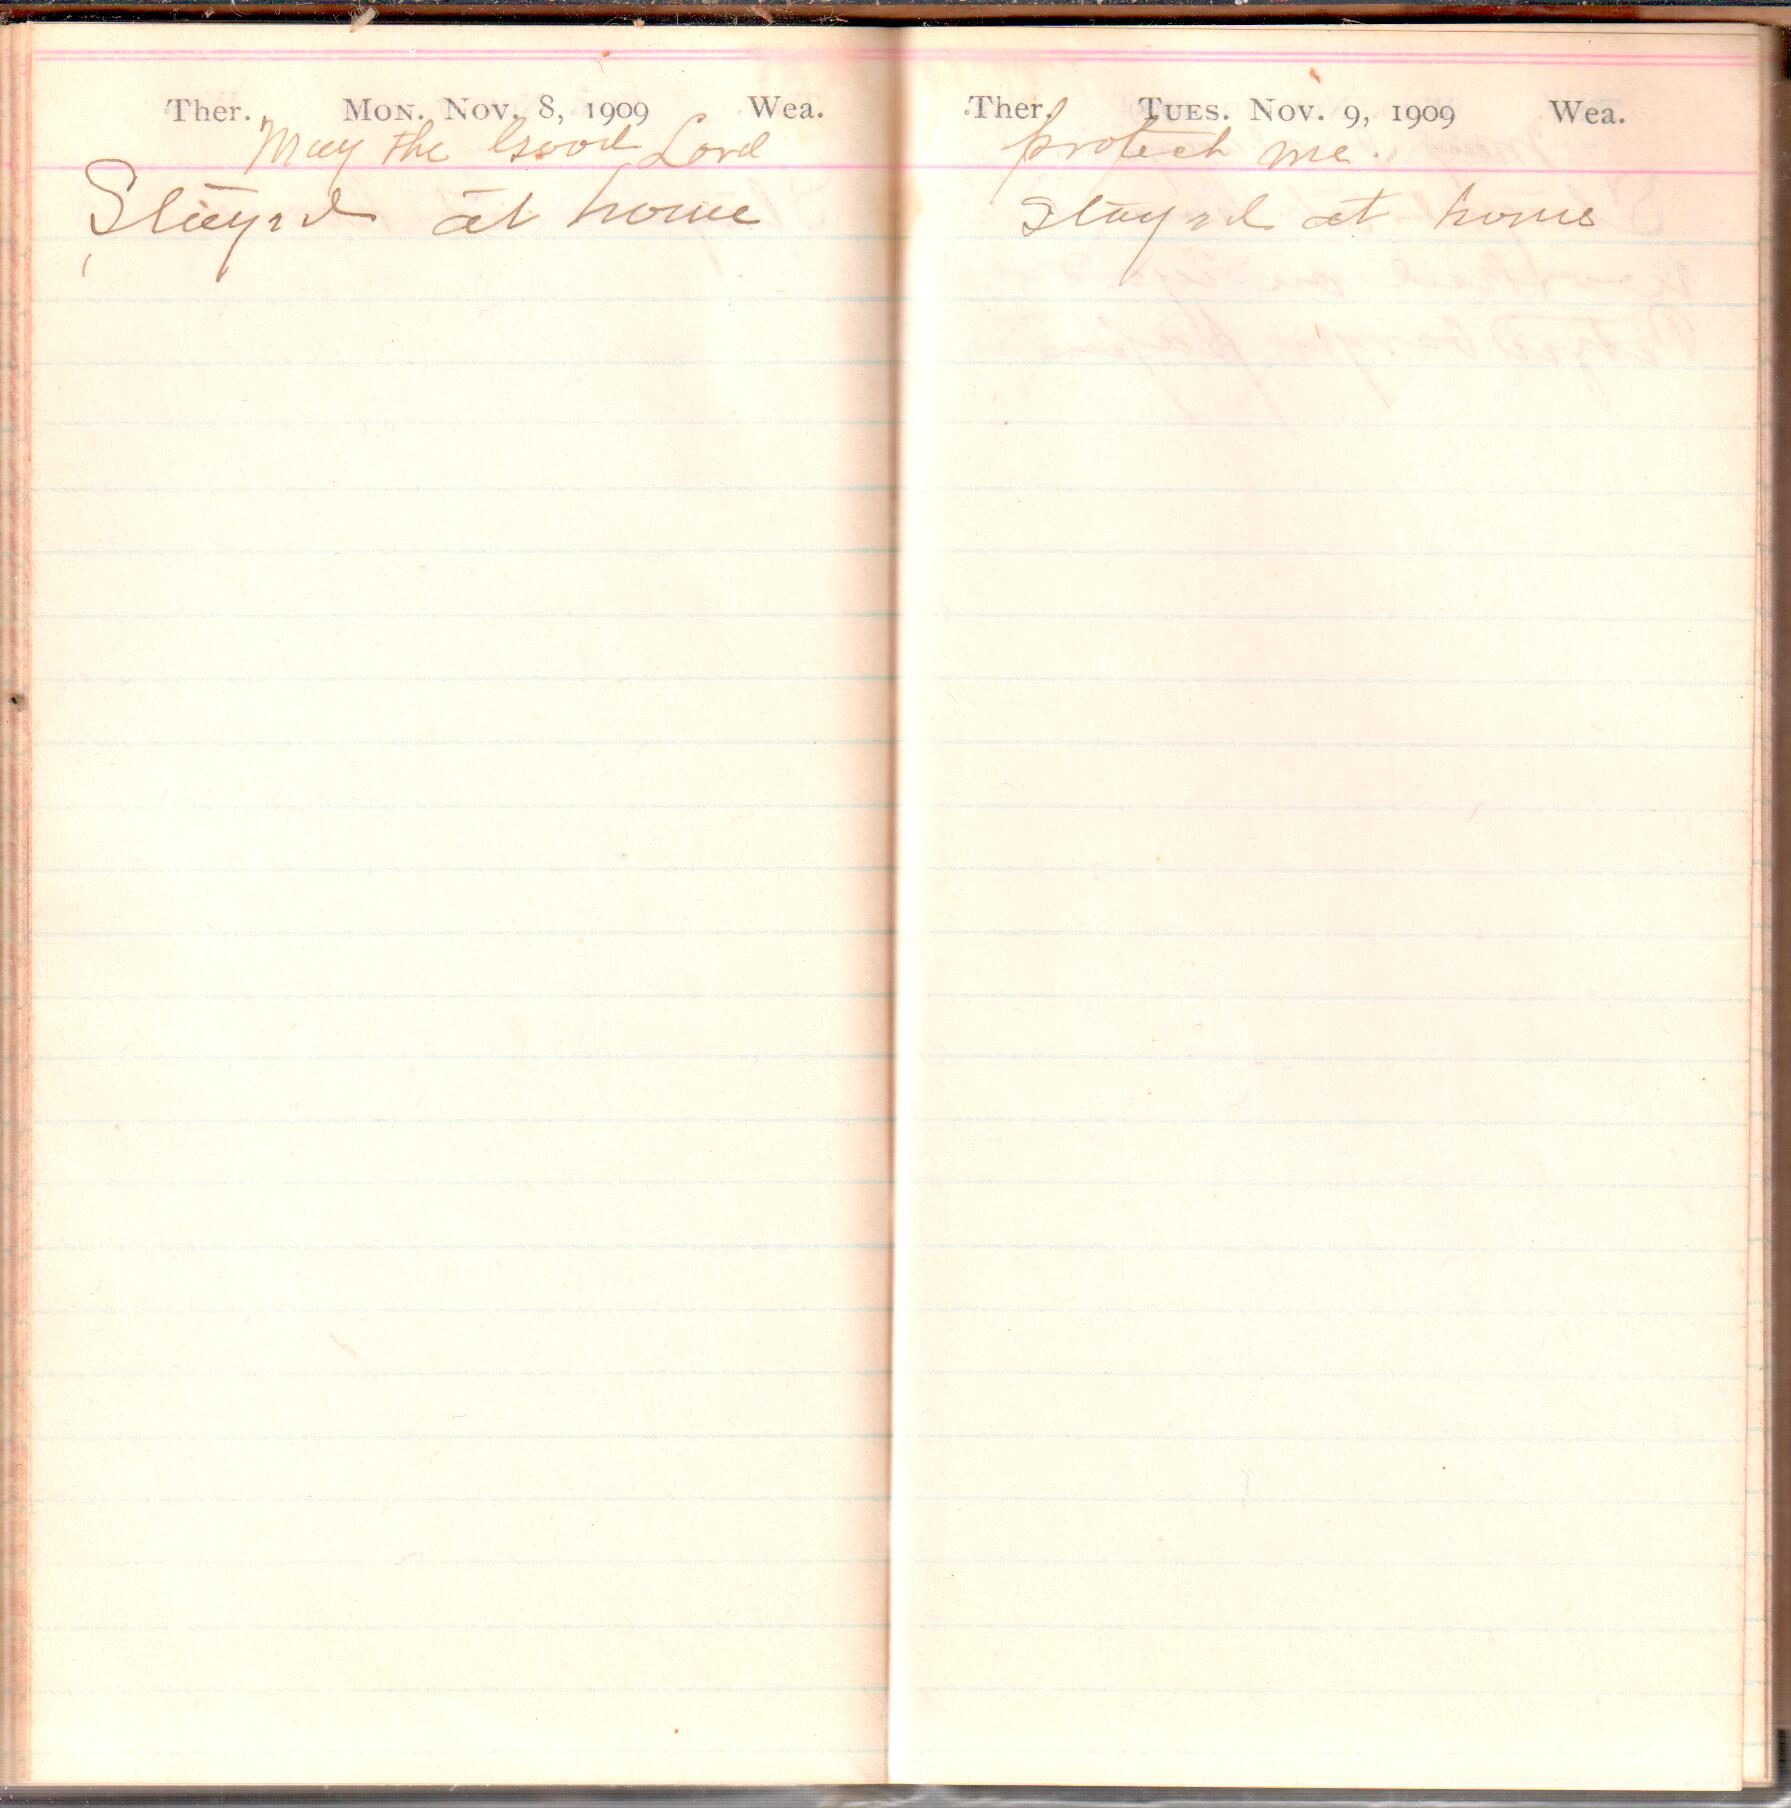 Ther. Mon. Nov. 8, 1909 Wea.
May the Good Lord
Stayed at home
Ther. Tues. Nov. 9, 1909 Wea.
protect me.
Stayed at home